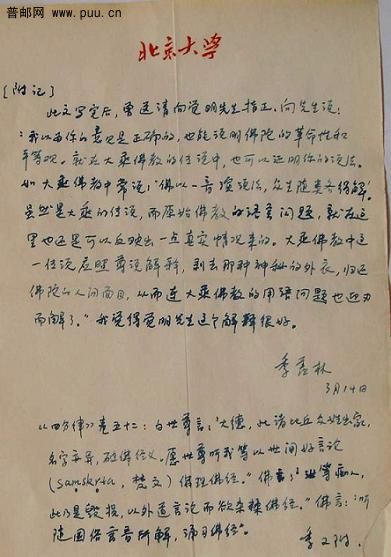 普邮网
www.puu.cn
北京大学
[附记]
此文写完后，曾送请向觉明先生指正。向先生说：
“我以为你的意见是正确的，也能说明佛陀的革命性和
平等观。就在大乘佛教的传说中，也可以证明你的说法。
如大乘佛教中常说：‘佛以一音演说法，众生随类各得解’。
虽然是大乘的传说，而原始佛教的语言问题，就在这
里也还是可以反映出一点真实情况来的。大乘佛教中这
一传说应照尊说解释，剥去那种神秘的外衣，归还
佛陀的人间面目，从而连大乘佛教的用语问题也迎刃
而解了。”我觉得觉明先生这个解释很好。
季羡林
3月14日
《四分律》卷五十二：白世尊言：‘大德，此诸比丘众姓出家，
名字亦异，破佛经义。愿世尊听我等以世间好言论
(saṃskṛta，梵文) 佛经。”佛言：“痴人，
此乃是毁损，以外道言论而欲杂糅佛经。”佛言：“听
随国俗言音所解，诵习佛经”。
季又附